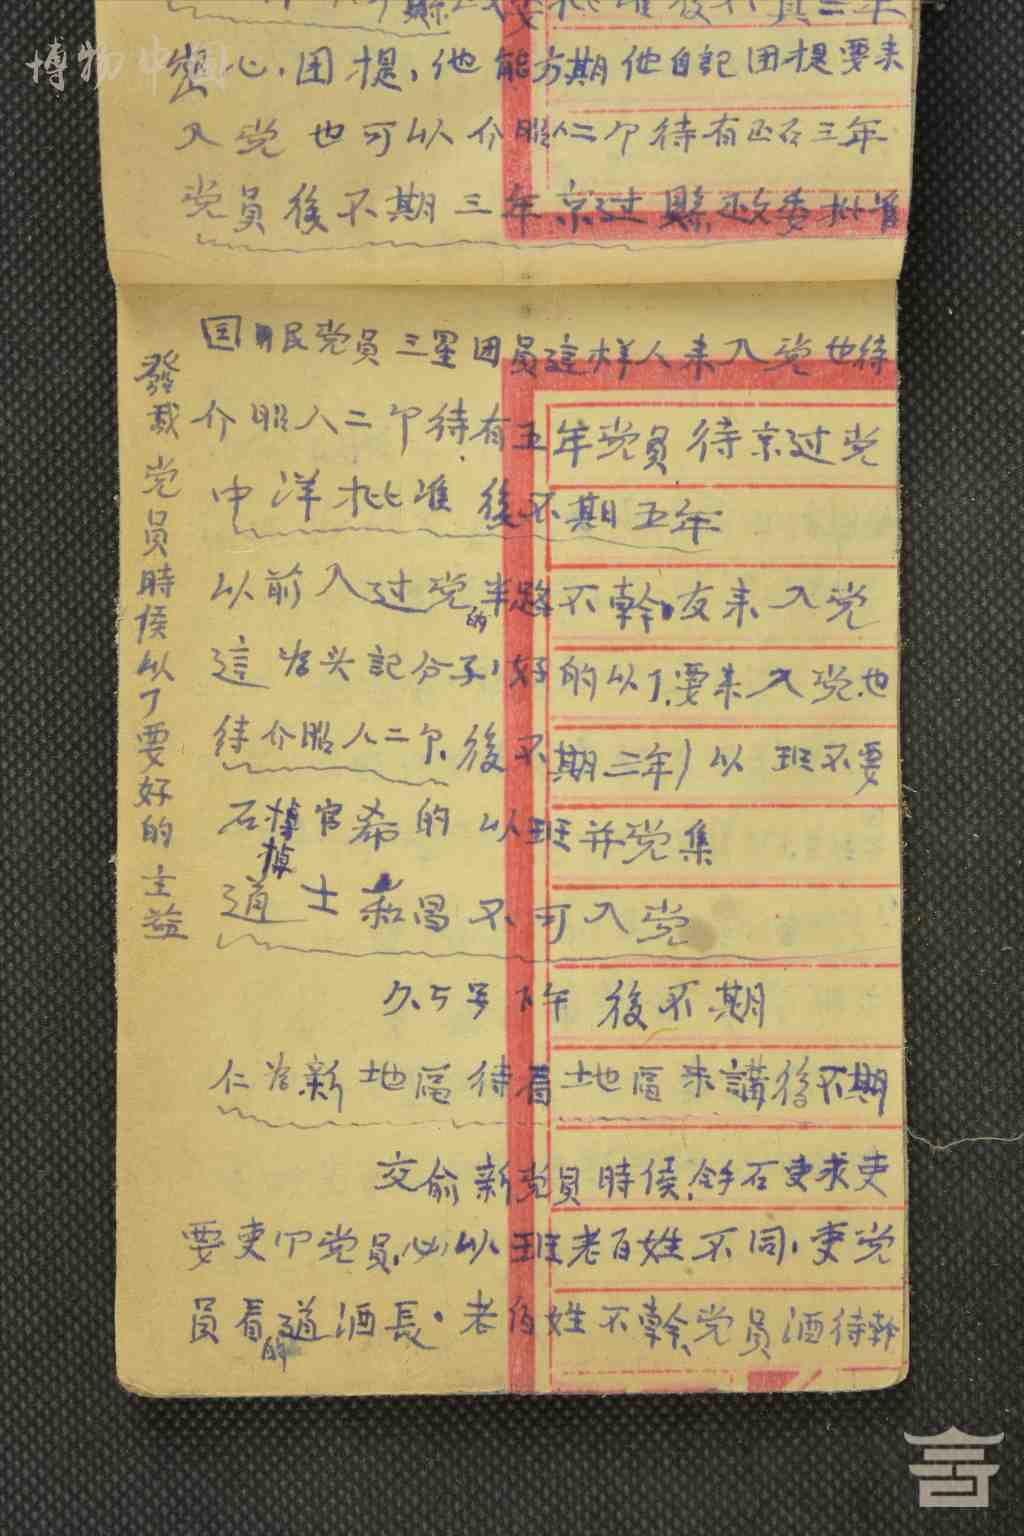 博物中国
心,团提,他能方期他自記团提要来
入党也可以介昭人二个待有正石三年
党員後不期三年京过縣政委批准
国民党員三星团員這样人来入党也待
介昭人二个待有五年党員待京过党
中洋批准後不期五年
以前入过党的半路不幹友来入党
這为头記分子,好的以了,要来入党也
待介昭人二个,後不期二年)以班不要
石掉官希的以班并党集
道士和昌不可入党
久5号下午後不期
仁为新地區待看土地區来講後不期
交俞新党員時侯,令石吏求吏
要吏个党員,必以班老百姓不同,吏党
員看的道酒長,老百姓不幹,党員酒待幹
發載党員時侯以了要好的主益